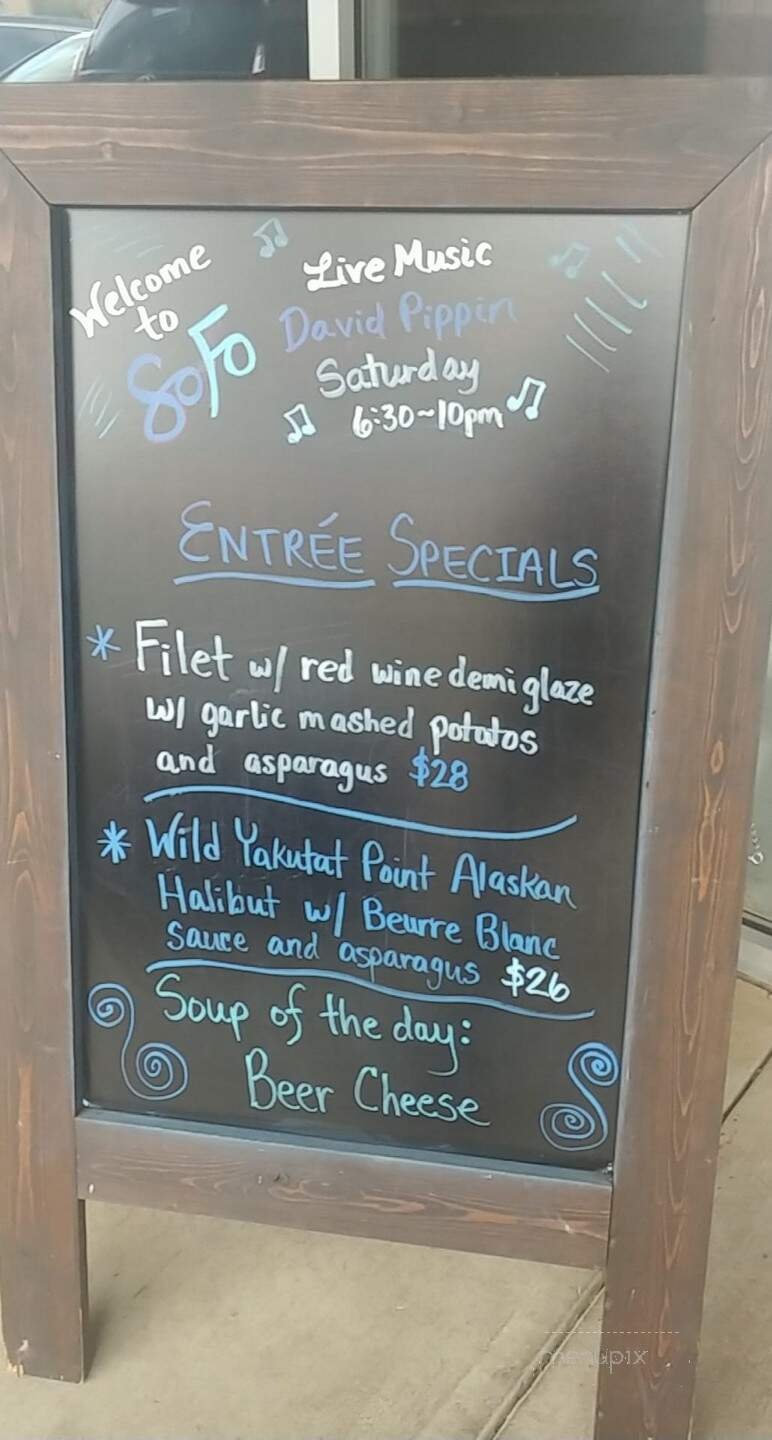 Welcome
to
SoFo
Live Music
David Pippin
Saturday
6:30~10pm
ENTRÉE SPECIALS
* Filet w/ red wine demi glaze
w/ garlic mashed potatos
and asparagus $28
* Wild Yakutat Point Alaskan
Halibut w/ Beurre Blanc
sauce and asparagus $26
Soup of the day:
Beer Cheese
menupix